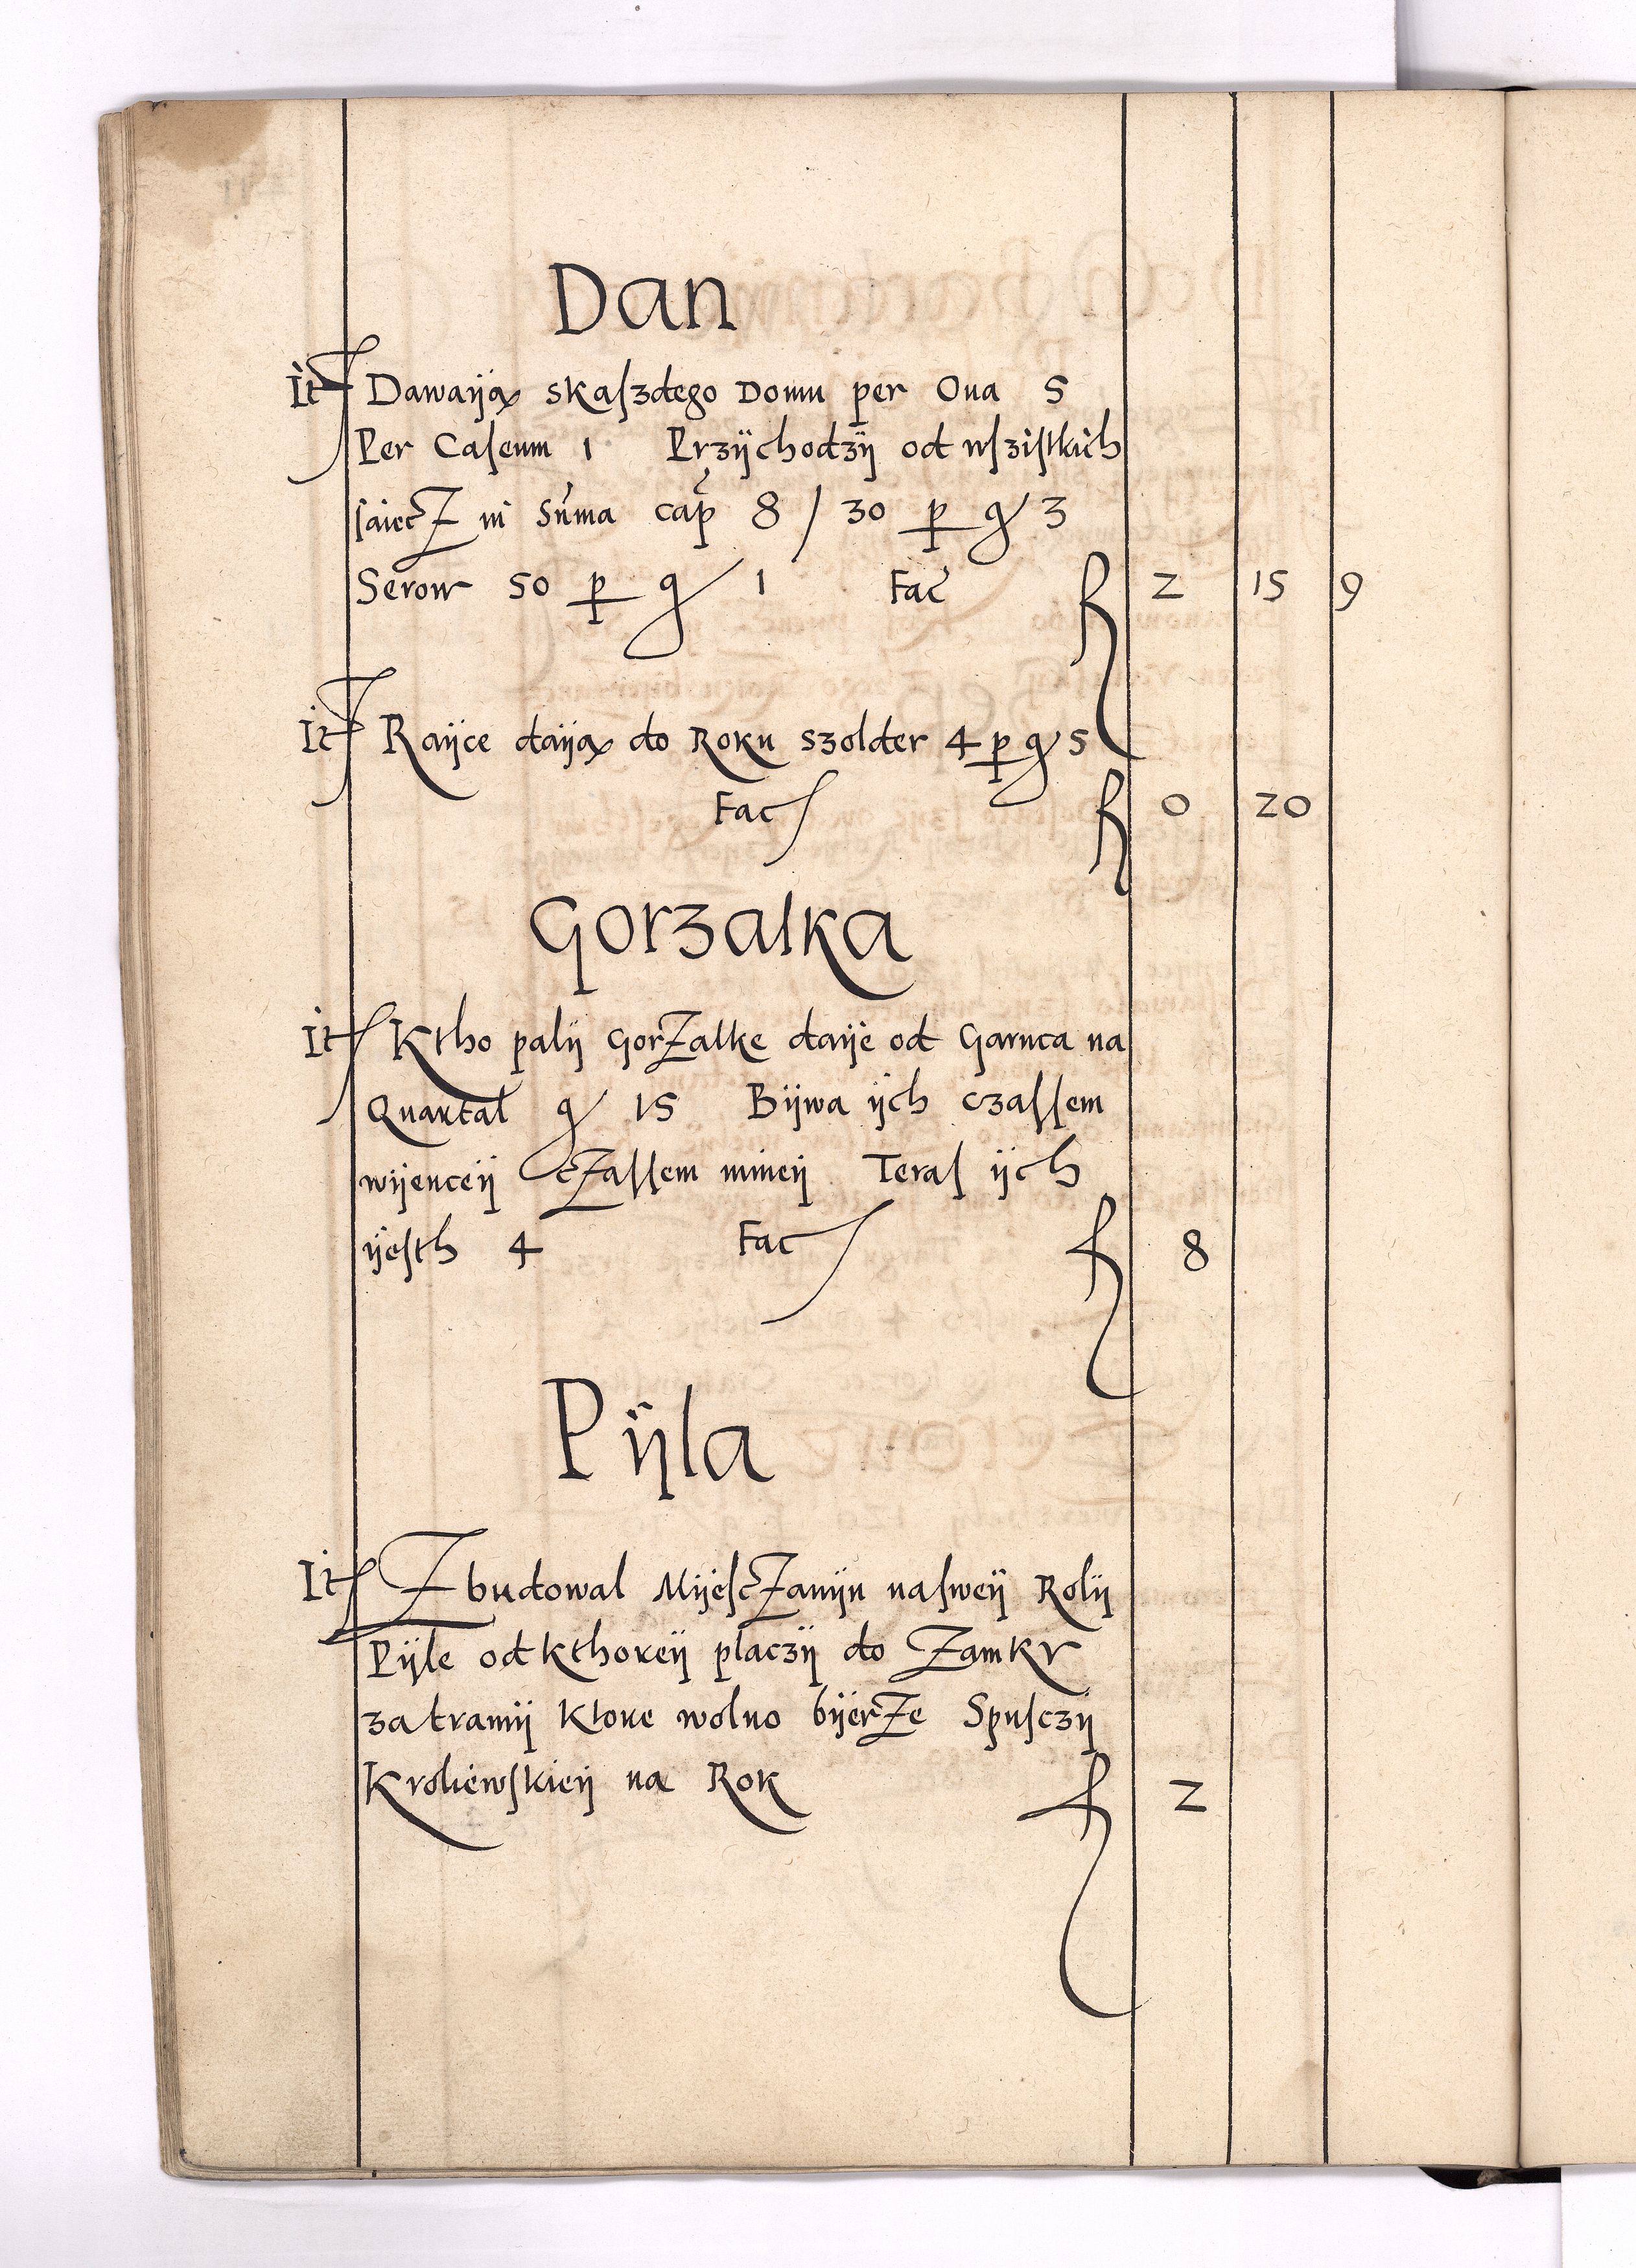 Dan
It Dawaÿą skaſzdego Domu per Oua 5
Per Caſeum 1 Przÿchodzÿ od wſziſtkich
ſaiecZ in Sum̃a cap̃ 8 / 30 p g 3
Serow 50 p g 1 Fac̃ 2 15 9
It Raÿce daÿą do Roku szolder 4 p g 5
Fac 0 20
Gorzalka
It Ktho palÿ GorZalke daÿe od Garnca na
Quartal g 15 Bÿwa ÿch czaſſem
wÿenceÿ cZaſſem mineÿ Teraſ ÿch
ÿeſth 4 Fac 8
Pÿla
It Zbudowal MÿeſcZanÿn naſweÿ Rolÿ
Pÿle od kthoreÿ placzÿ do Zamku
za tramÿ ktore wolno bÿerZe Spuſczÿ
Kroliewſkieÿ na Rok 2